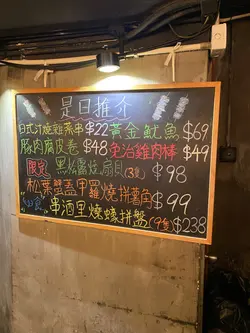 是日推介
日式汁燒雞蔥串 $22 黃金魷魚 $69
豚肉腐皮卷 $48 免治雞肉棒 $49
限定 黑松露燒扇貝(3隻) $98
松葉蟹蓋甲羅燒拼薯角 $99
串酒里燒蠔拼盤(9隻) $238